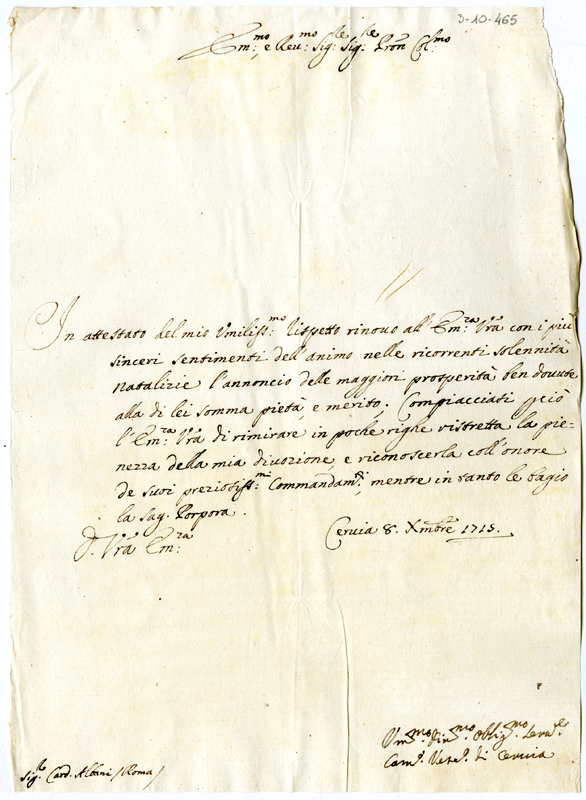 3-10-465
Em:mo e Reu:mo Sig:re Sig:re Pron Col:mo
In attestato del mio Vmiliss:mo rispetto rinouo all' Em:ra Vrã con i più
sinceri sentimenti dell' animo nelle ricorrenti solennità
natalizie l'annoncio delle maggiori prosperità ben douute
alla di lei somma pietà, e merito. Compiacciati pciò
l'Em:ra Vrã di rimirare in poche righe ristretta la pie=
nezza della mia diuozione, e riconoscerla coll' onore
de suoi preziosiss:mi Commandam:ti, mentre in tanto le bagio
la sag. Porpora.
D. Vrã Em:ra
Ceruia 8. Xmbre 1715.
Vm:mo Diu:mo Obblig:mo Seru:e
Cam. Vesc. di Ceruia
Sig:r Card. Albani (Roma)